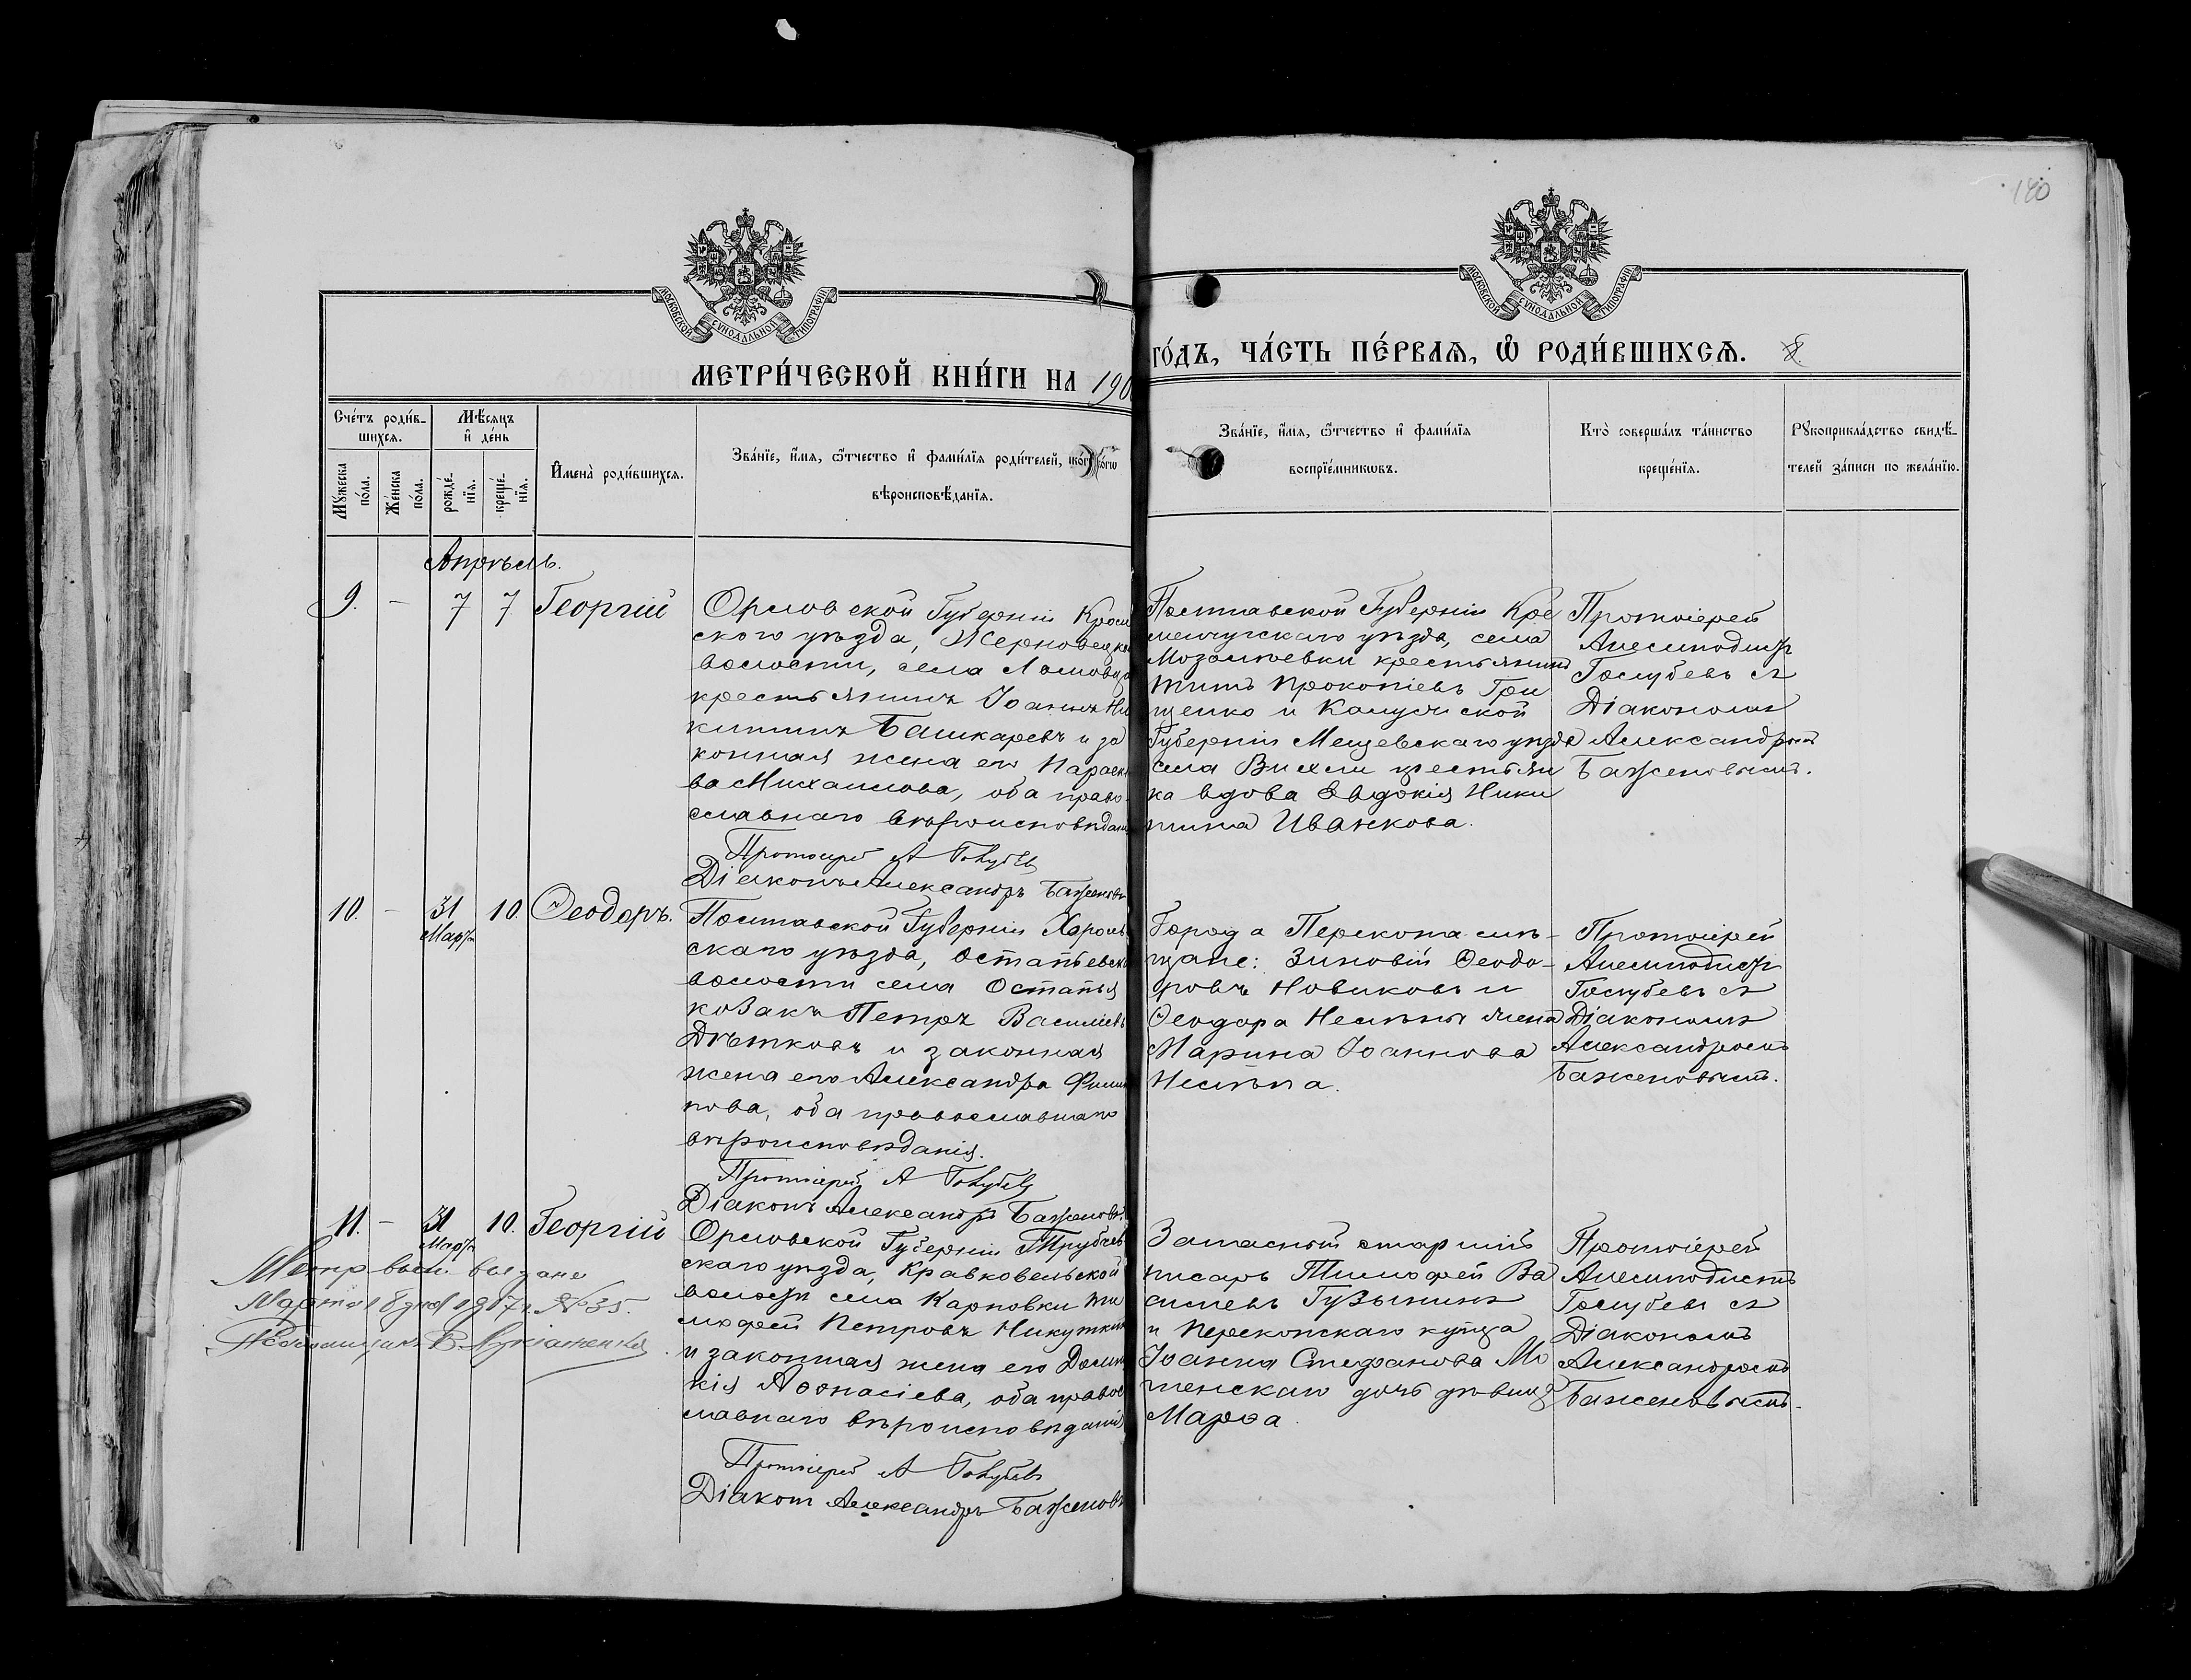 180
МОСКОВСКОЙ СѴНОДАЛЬНОЙ ТИПОГРАФІИ
МОСКОВСКОЙ СѴНОДАЛЬНОЙ ТИПОГРАФІИ
МЕТРИ́ЧЕСКОЙ КНИ́ГИ НА 190
ГО́ДЪ, ЧА́СТЬ ПЕ́РВАѦ, Ѽ РОДИ́ВШИХСѦ.
Сче́тъ роди́в-
шихсѧ.
Мѣ́сѧцъ
и҆ де́нь
Мꙋ́жеска
по́ла.
Же́нска
по́ла.
рожде́-
нїѧ.
креще́-
нїѧ.
И҆мена̀ роди́вшихсѧ.
Зва́нїе, и҆́мѧ, ѻ҆́тчество и҆ фами́лїѧ роди́телей,
вѣроисповѣ́данїѧ.
Зва́нїе, и҆́мѧ, ѻ҆́тчество и҆ фами́лїѧ
воспрїе́мникѡвъ.
Кто̀ соверша́лъ та́инство
креще́нїѧ.
Рꙋкоприкла́дство свидѣ́-
телей за́писи по жела́нїю.
Апрѣль.
9. - 7 7 Георгій
Орловской Губерніи Кром
скаго уѣзда, Жерновецко
волости, села Ломовца
крестьянинъ Іоаннъ Ни
китинъ Башкаревъ и за
конная жена его Параске
ва Михаилова, оба право
славнаго вѣроисповѣдан
Протоіерей А Голубевъ
Діаконъ Александръ Баженовъ
Полтавской Губерніи Кре
менчугскаго уѣзда, села
Мозолѣевки крестьянинъ
Титъ Прокопіевъ Гри
щенко и Калужской
Губерніи Мещевскаго уѣзда
села крестьян
ка вдова Евдокія Ники
тина Иванкова.
Протоіерей
Анемподистъ
Голубевъ съ
Діакономъ
Александромъ
Баженовымъ.
10. - 31 Март 10. Ѳеодоръ.
Полтавской Губерніи Хороль
скаго уѣзда, Остапьевско
волости села Остапья
козакъ Петръ Василіевъ
Дѣтковъ и законная
жена его Александра Филип
пова, оба православнаго
вѣроисповѣданія.
Протоіерей А Голубевъ
Діаконъ Александръ Баженовъ.
Города Перекопа мѣ-
щане: Зиновій Ѳеодо-
ровъ Новиковъ и
Ѳеодора Нелѣпы жена
Марина Іоаннова
Нелѣпа.
Протоіерей
Анемподистъ
Голубевъ съ
Діакономъ
Александромъ
Баженовымъ.
11. - 31 Март 10. Георгій
Орловской Губерніи Трубчев
скаго уѣзда, Кравковельской
волости села Карповки Ти
моѳей Петровъ Никуткин
и законная жена его
кія Аѳонасіева, оба правос
лавнаго вѣроисповѣданія
Протоіерей А Голубевъ
Діаконъ Александръ Баженовъ
Запасный старшій
писарь Тимоѳей Ва
силіевъ
и Перекопскаго купца
Іоанна Стефанова Мо
гиленскаго дочь дѣвица
Марѳа.
Протоіерей
Анемподистъ
Голубевъ съ
Діакономъ
Александромъ
Баженовымъ.
Метр. вып. выдана
Марта 18 дня 1917 г. № 35.